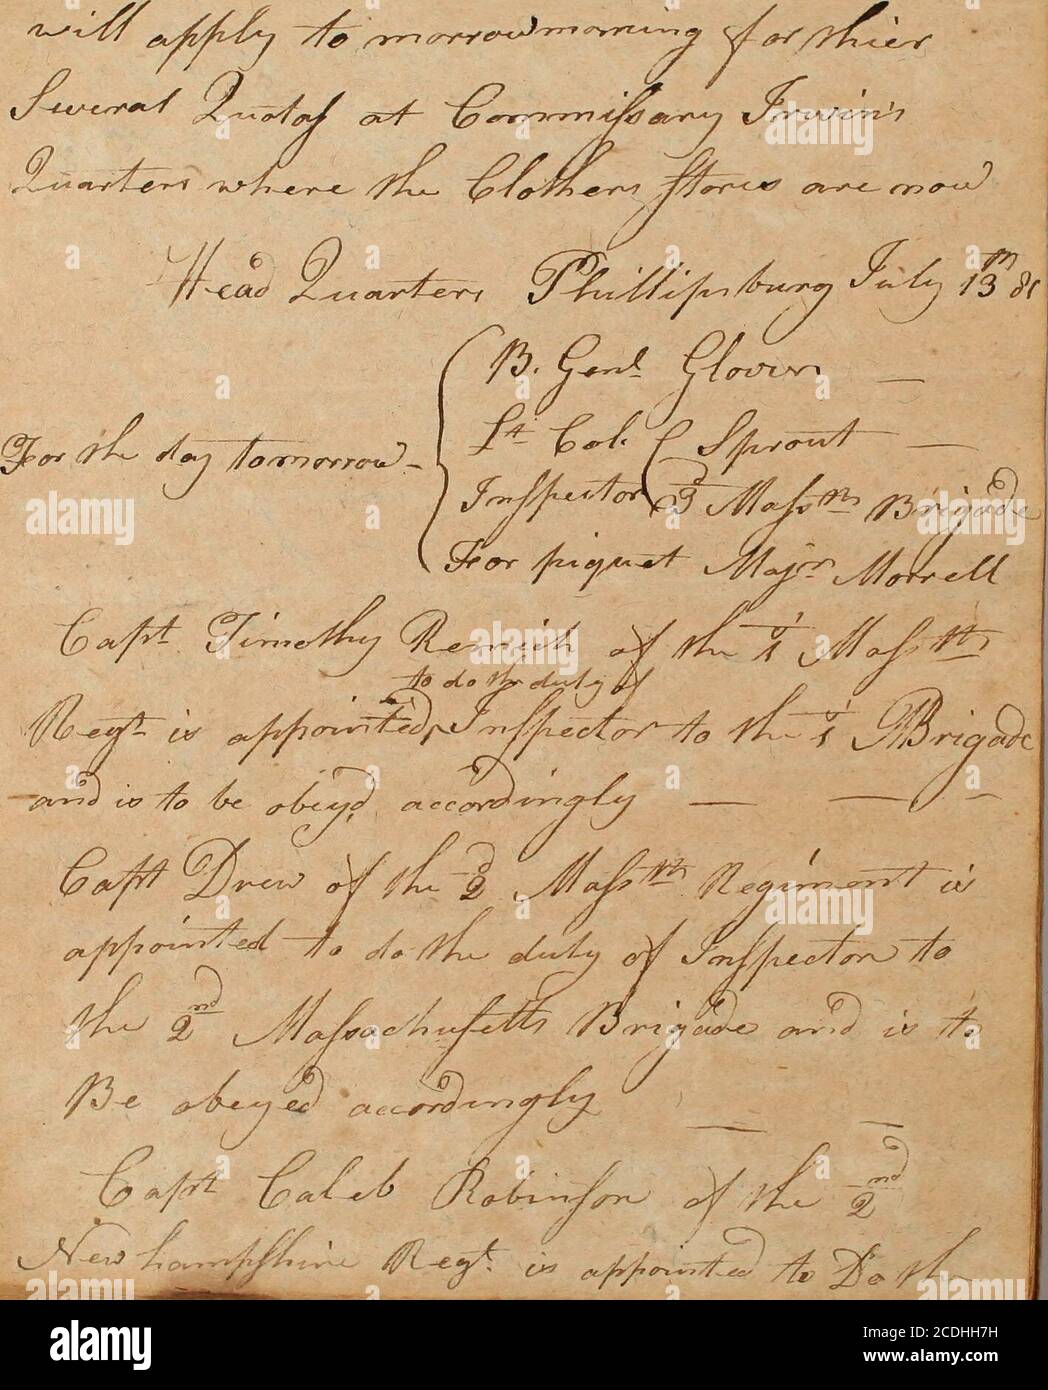 will apply to morrow morning for thier
Several Quotas at Commissary Irwin's
Quarters where the Clothers Stores are now
Head Quarters Phillipsburg July 13th 81
B. Genl. Glovers —
Lt Col. Sprout —
For the day tomorrow -
Inspector 3d Massts Brigade
For piquet Majr. Morrell
Capt. Timothy Remich of the 1st Massts
to do the duty of
Regt is appointed Inspector to the 1st Brigade
and is to be obeyd accordingly — — -
Capt Drew of the 2d Massts Regiment is
appointed to do the duty of Inspector to
the 2nd Massachusetts Brigade and is to
Be obeyed accordingly — —
Capt Caleb Robinson of the 2nd
New hampshire Regt. is appointed to Do the
alamy
Image ID: 2CDHH7H
www.alamy.com